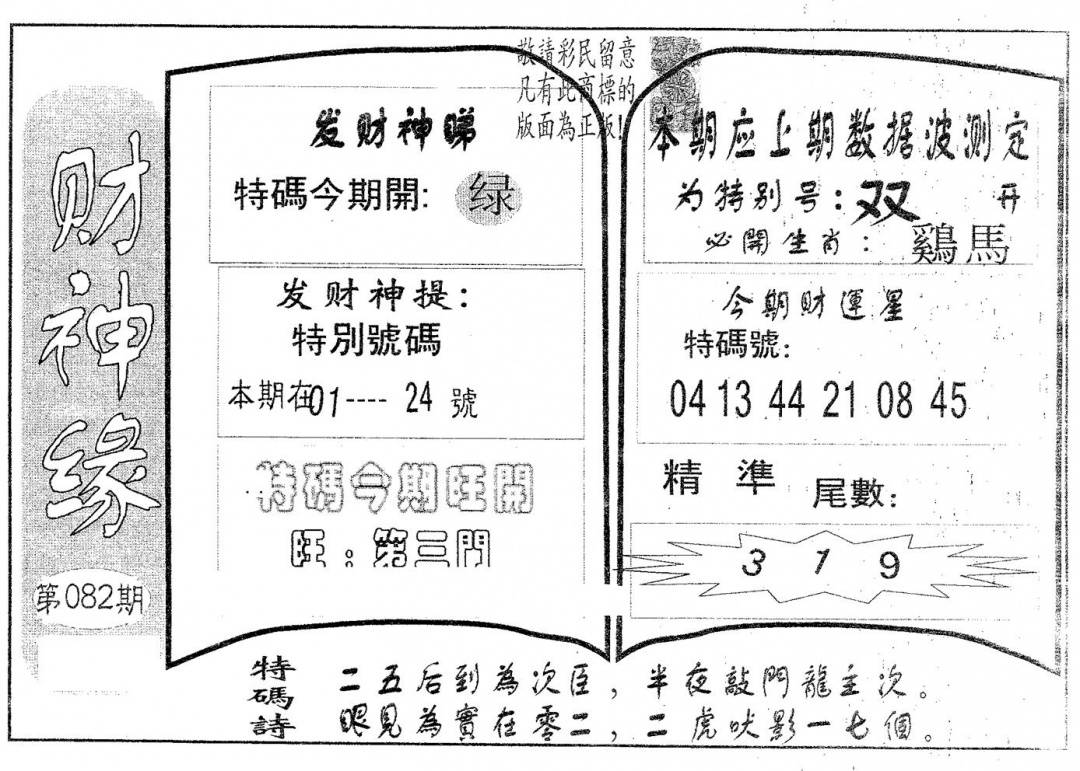 财神缘
第082期
敬請彩民留意
凡有此商標的
版面為正版!
发财神睇
特碼今期開: 绿
发财神提:
特別號碼
本期在01----24號
特碼今期旺開
旺:第三門
本期应上期数据波测定
为特别号:双 开
必開生肖: 鷄馬
今期财運星
特碼號:
04 13 44 21 08 45
精準 尾數:
3 1 9
特碼詩
二五后到為次臣,半夜敲門龍主次。
眼見為實在零二,二虎吠影一七個。